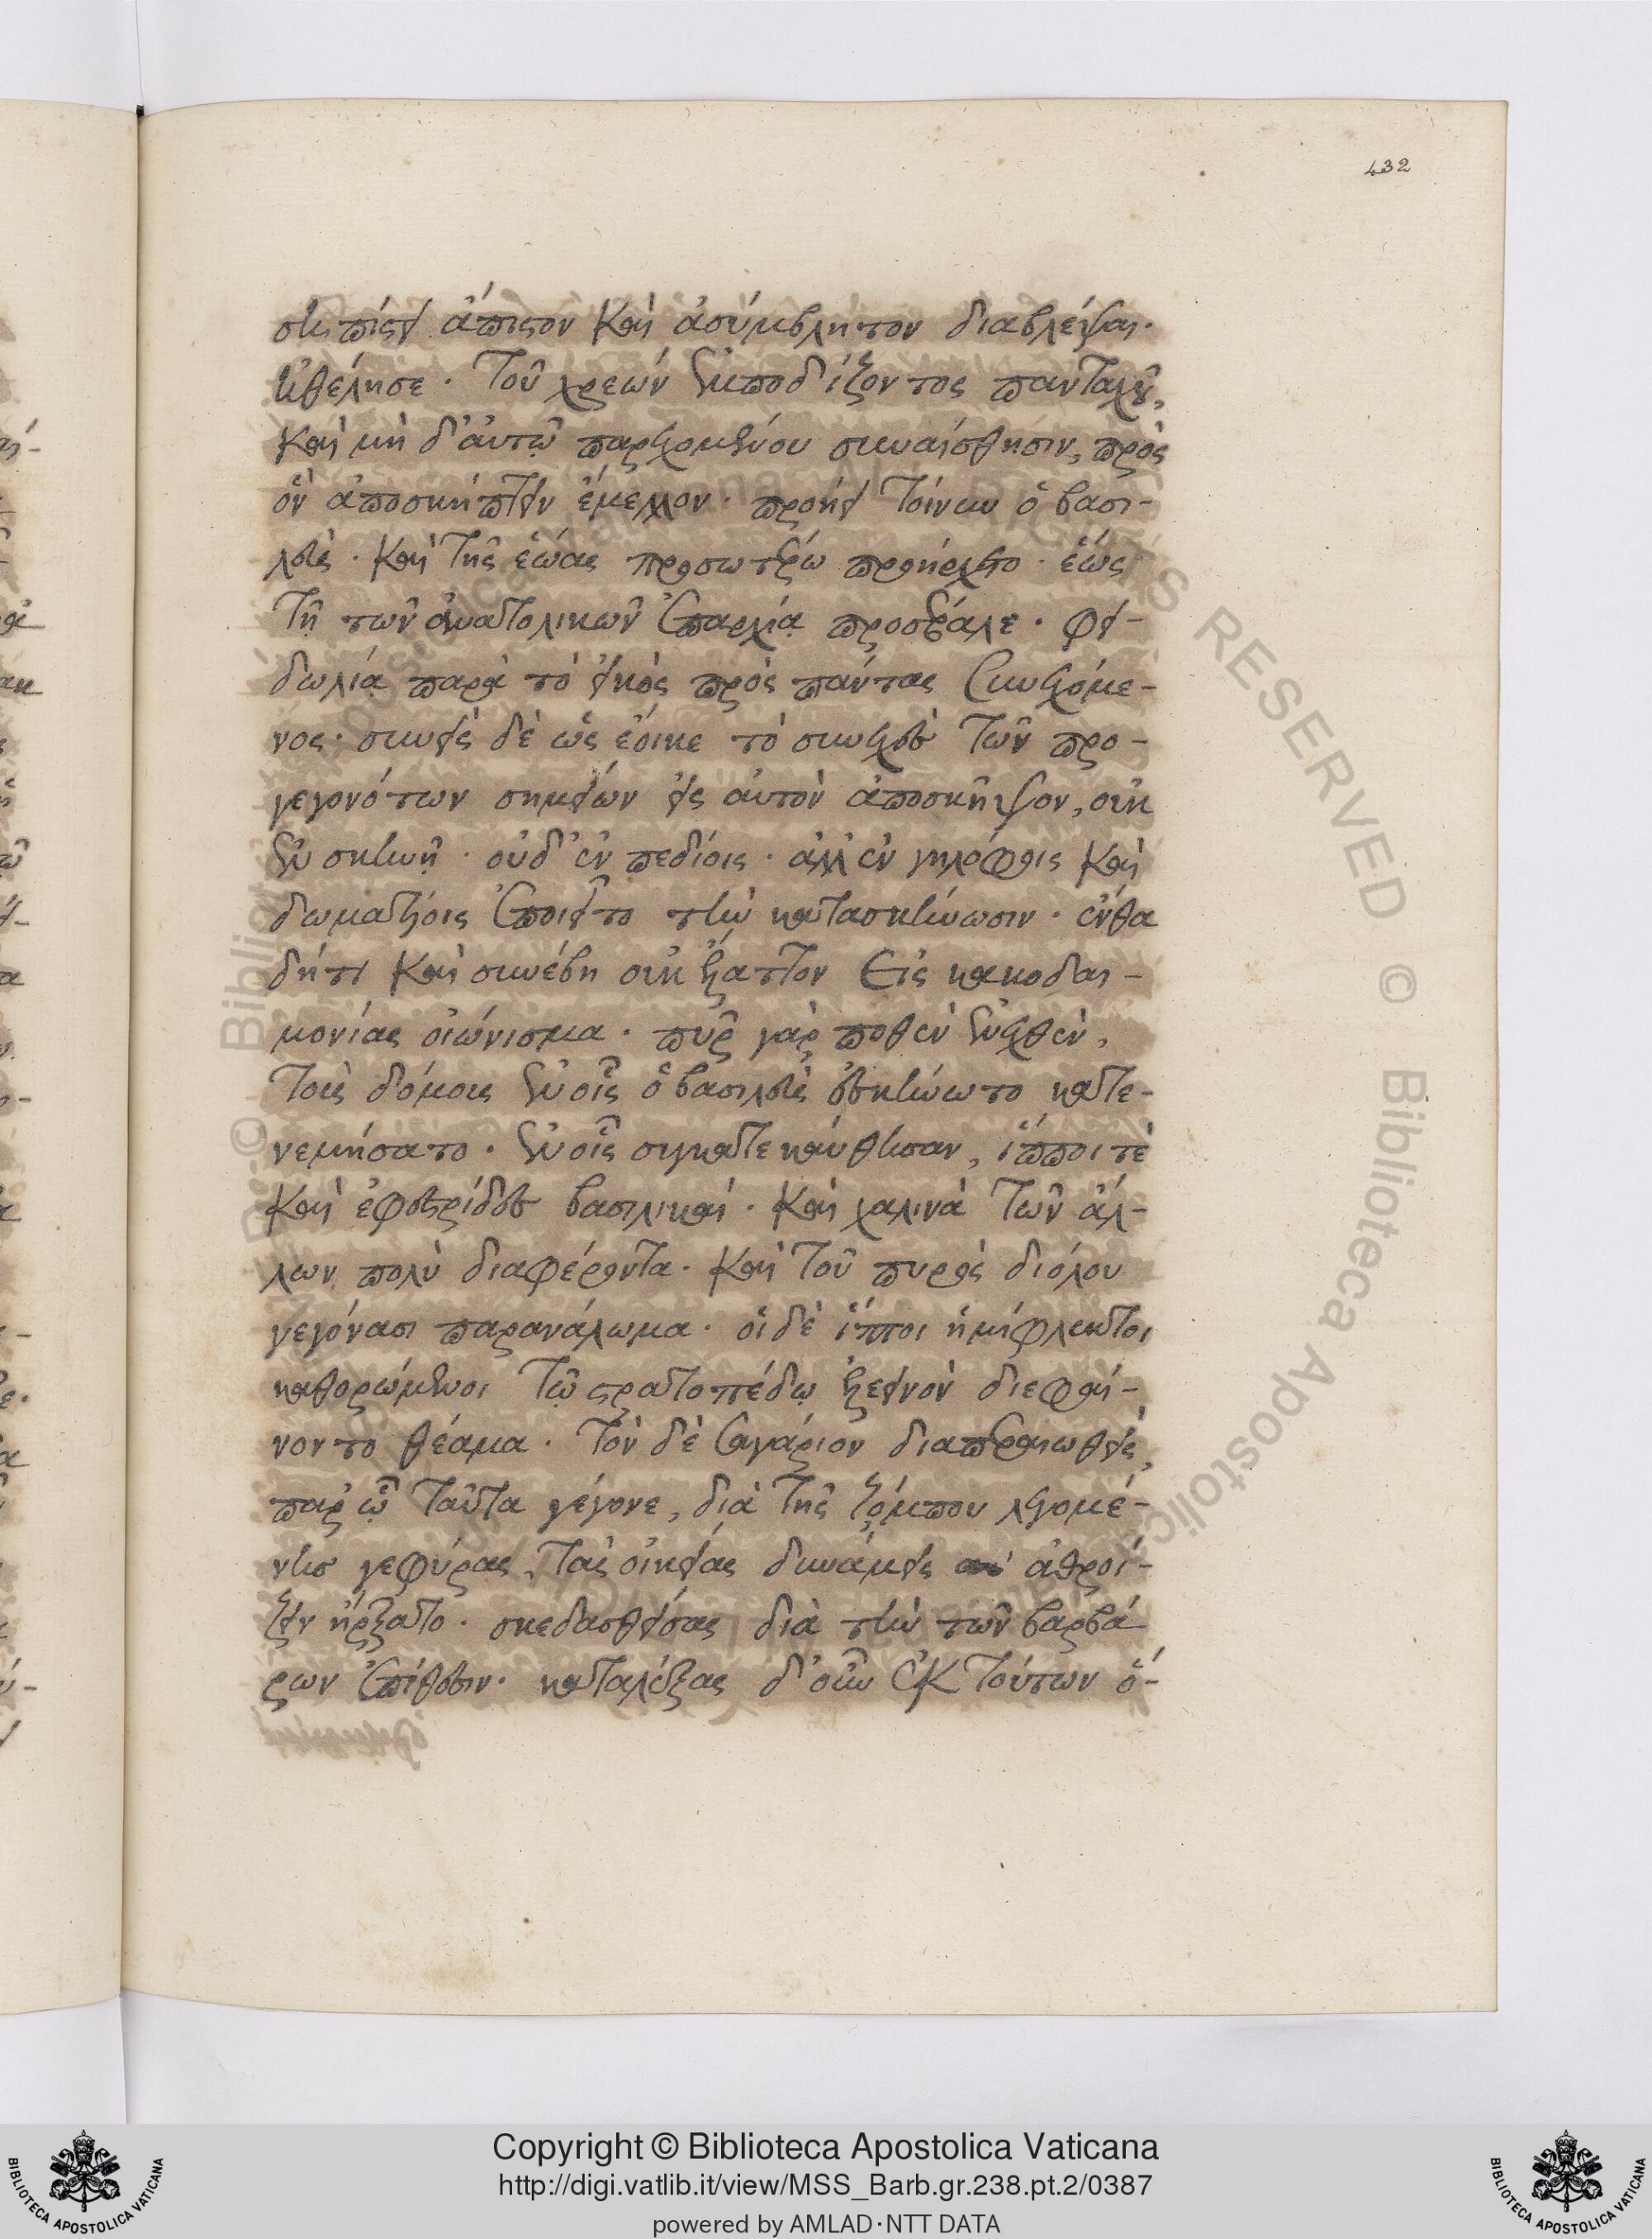 432
σθῆ πίστει ἄπιστον καὶ ἀσύμβλητον διαβλέψαι·
ἠθέλησε. τοῦ χρεών ἐμποδίζοντος πανταχοῦ,
καὶ μὴ δ' αὐτῷ παρεχομένου συναίσθησιν, πρὸς
ὃν ἀποσκήπτειν ἔμελλον. προήει τοίνυν ὁ βασι-
λεὺς. καὶ τῆς ἑώας προσωτέρω προήρχετο. ἕως
τῇ τῶν ἀνατολικῶν ἐπαρχίᾳ προσέβαλε. φει-
δωλίᾳ παρὰ τὸ εἰκὸς πρὸς πάντας
νος. συνεὶς δὲ ὡς ἔοικε τὸ συνεχὲς τῶν προ-
γεγονότων σημείων εἰς αὐτὸν ἀποσκῆψον, οὐκ
ἐν σκηνῇ. οὐδ' ἐν πεδίοις. ἀλλ' ἐν γηλόφοις καὶ
δωματίοις ἐποιεῖτο τὴν κατασκήνωσιν. ἔνθα
δήτι καὶ συνέβη οὐκ ἔλαττον εἰς κακοδαι-
μονίας οἰώνισμα. πῦρ γάρ ποθεν ἐνεχθὲν,
τοὺς δόμους ἐν οἷς ὁ βασιλεὺς ἐσκήνωτο κατε-
νεμήσατο. ἐν οἷς συγκατεκαύθησαν, ἵπποι τὲ
καὶ ἐφεστρίδες βασιλικαί. καὶ χαλινὰ τῶν ἄλ-
λων πολὺ διαφέροντα. καὶ τοῦ πυρὸς διόλου
γεγόνασι παρανάλωμα. οἱ δὲ ἵπποι ἡμίφλεκτοι
καθορώμενοι τῷ στρατοπέδῳ ἐλεεινὸν διεφαί-
νοντο θέαμα. τὸν δὲ Σαγάριον διαπεραιωθεὶς,
παρ' ᾧ ταῦτα γέγονε, διὰ τῆς ζόμπου λεγομέ-
νης γεφύρας, τὰς οἰκείας δυνάμεις ἀθροί-
ζειν ἤρξατο. σκεδασθείσας διὰ τὴν τῶν βαρβά
ρων ἐπίθεσιν. καταλέξας δ' οὖν ἐκ τούτων ὅ-
Copyright © Biblioteca Apostolica Vaticana
http://digi.vatlib.it/view/MSS_Barb.gr.238.pt.2/0387
powered by AMLAD·NTT DATA
BIBLIOTECA APOSTOLICA VATICANA
BIBLIOTECA APOSTOLICA VATICANA